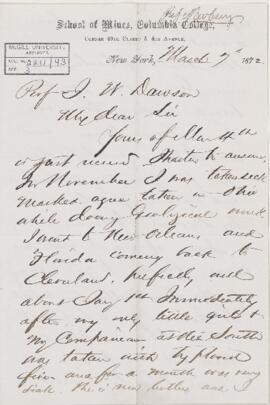 Prf Newberry
School of Mines, Columbia College,
Corner 49th Street & 4th Avenue,
New York, March 7th 1872
McGILL UNIVERSITY
ARCHIVES
ACC. NO. 2211/43
REF.
Prof J. W. Dawson
My dear Sir
Yours of Mar 4th
is just received. Hasten to answer.
In November I was taken sick
marked ague taken in Ohio
while doing Geological work
I went to New Orleans and
Florida coming back to
Cleveland, perfectly well
about Jany 1st. Immediately
after my only little girl &
my Companion at the South
was taken with typhoid
fever and for a month was very
sick. She is now better and I